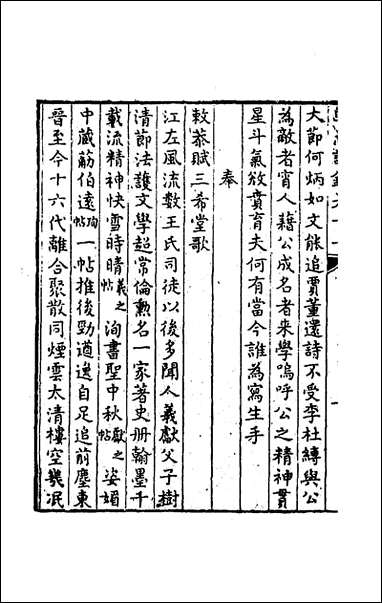 大節何炳如文能追賈董還詩不受李杜縛與公
為敵者宵人藉公成名者来學嗚呼公之精神貫
星斗氣欻賁育夫何有當今誰為寫生手
奉
敕恭賦三希堂歌
江左風流數王氏司徒以後多聞人羲獻父子樹
清節法護文學超常倫勲名一家著史册翰墨千
載流精神快雪時晴羲之帖洵書聖中秋獻之帖姿媚
中藏筋伯遠珣帖一帖推後勁遒逸自足追前塵東
晉至今十六代離合聚散同煙雲太清樓空㡬冺